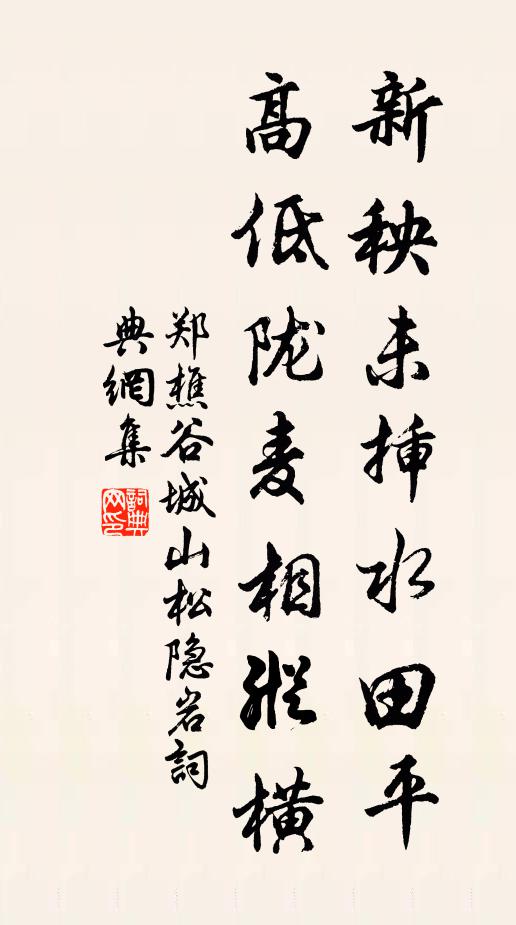 新秧未插水田平
高低陇麦相纵横
郑樵谷城山松隐岩詞
典網集
詞典網印